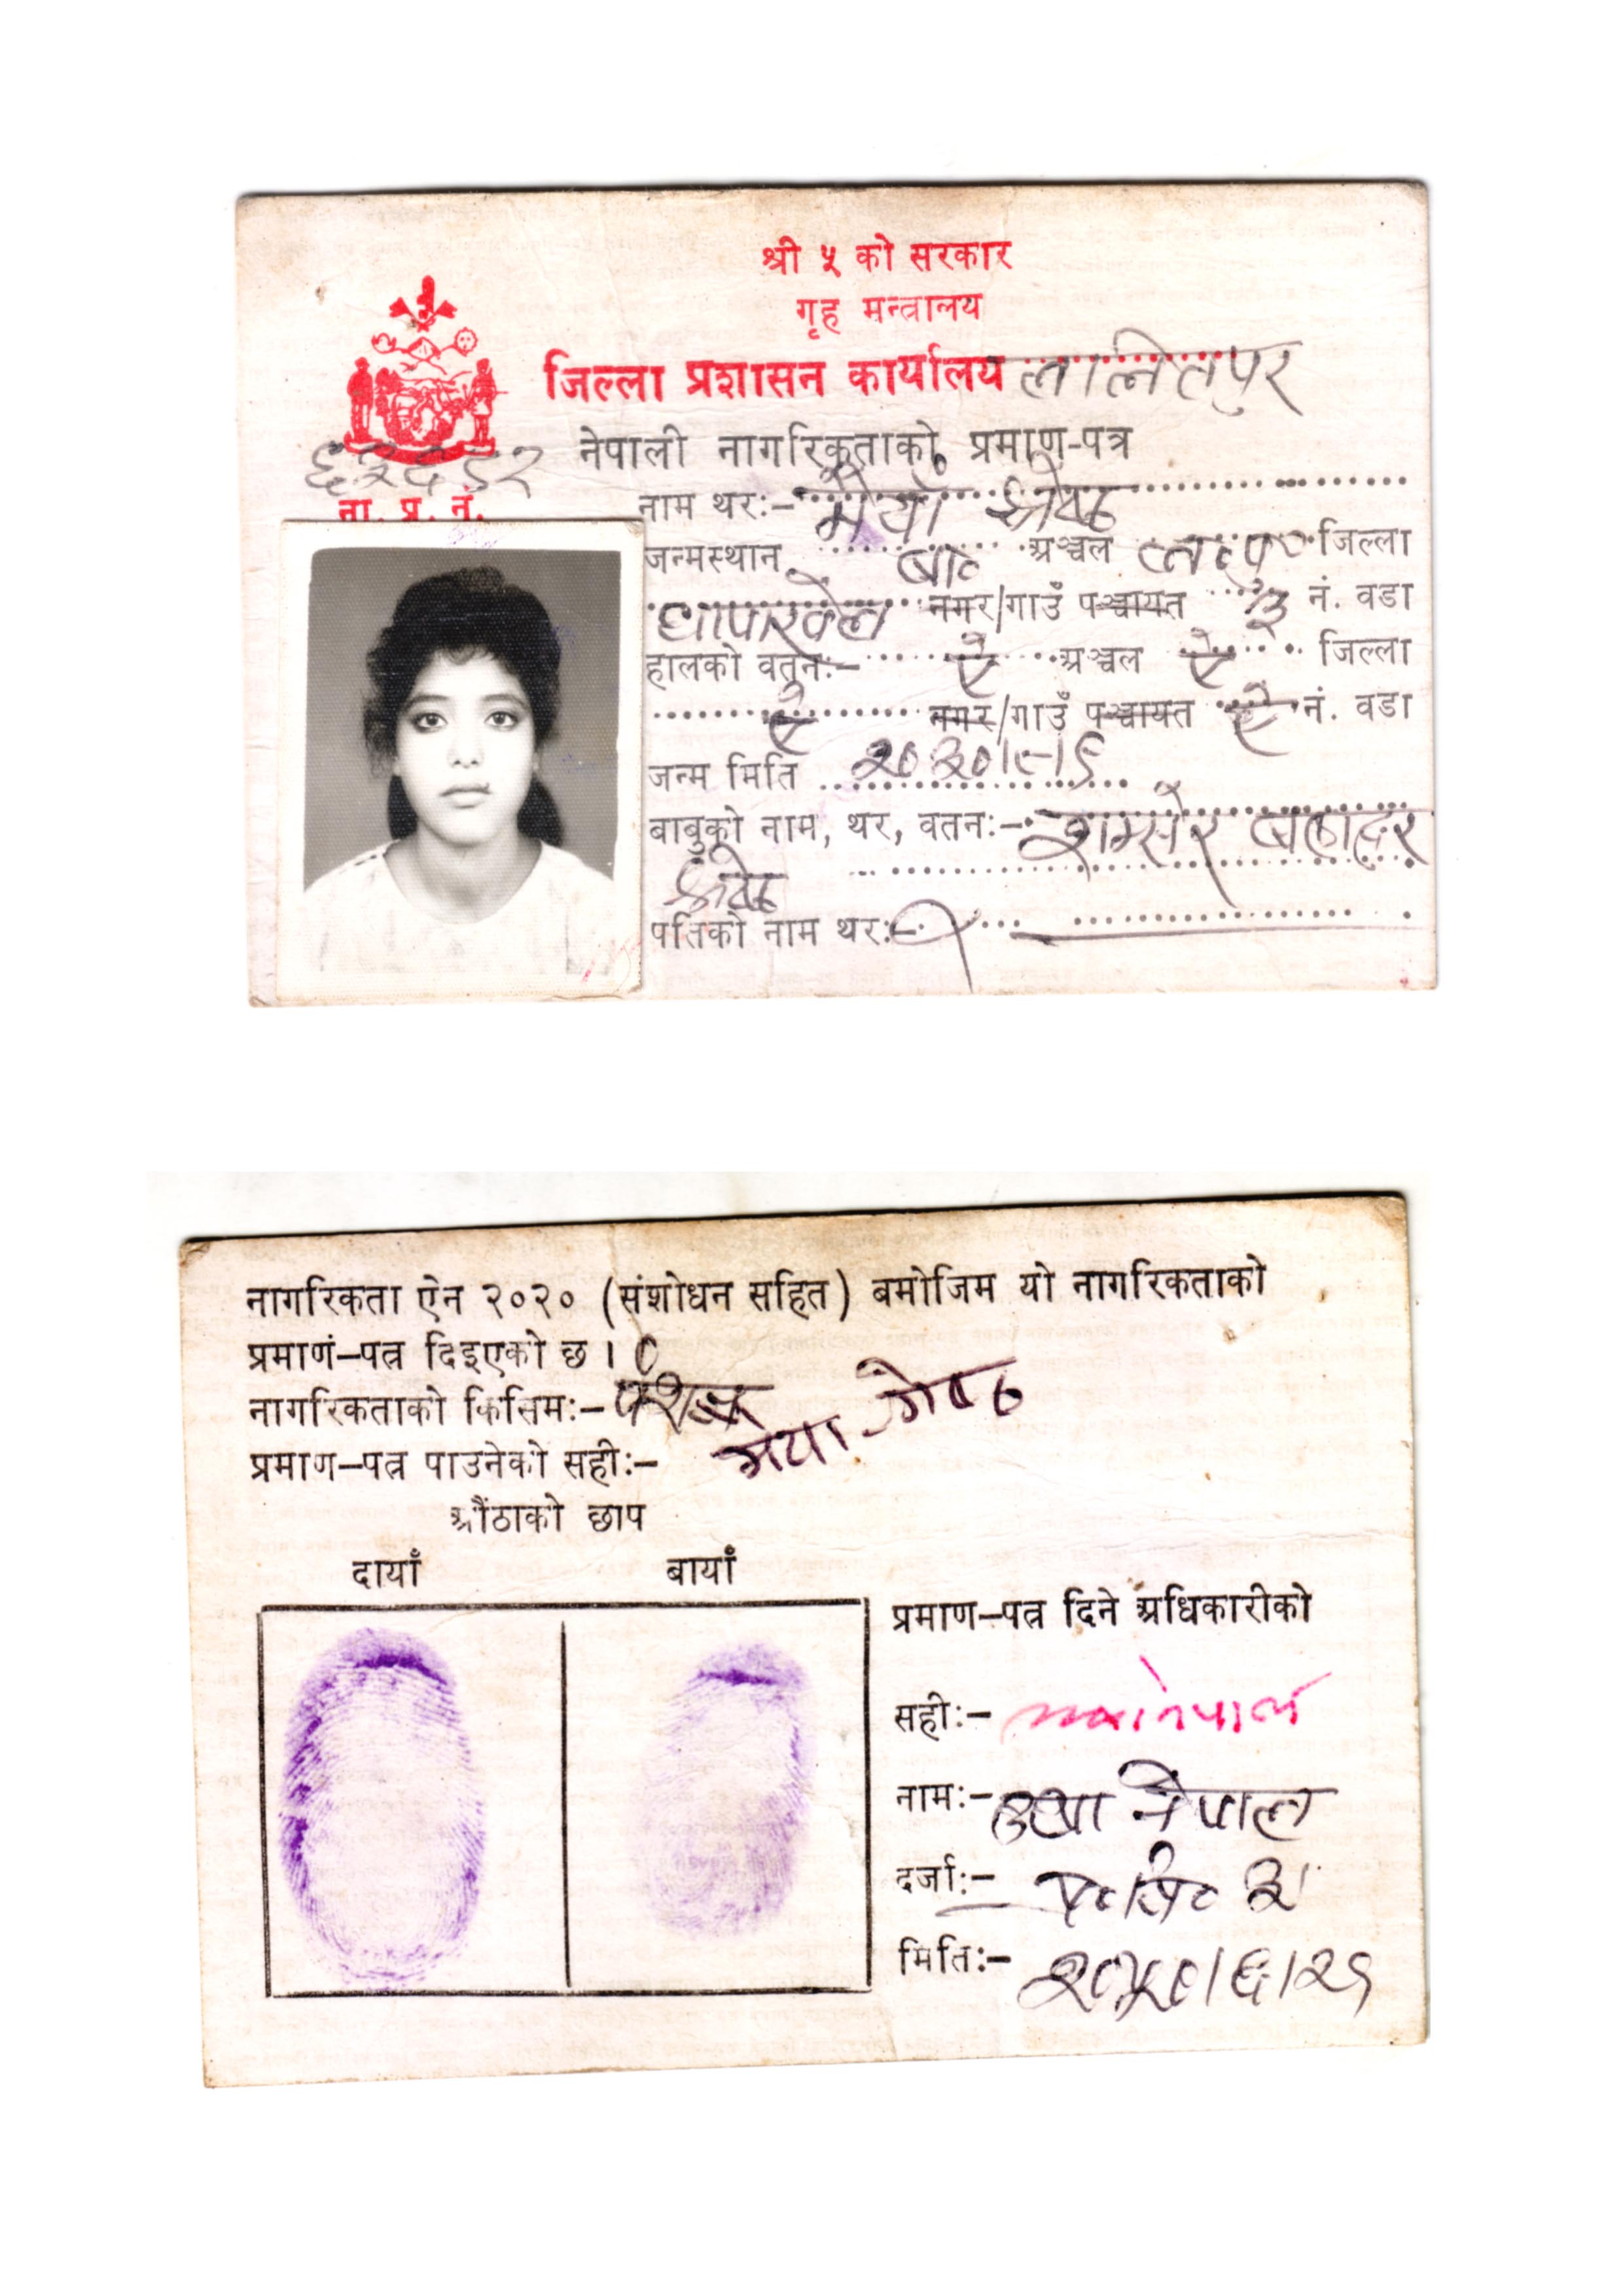 श्री ५ को सरकार
गृह मन्त्रालय
जिल्ला प्रशासन कार्यालय ललितपुर
नेपाली नागरिकताको प्रमाण-पत्र
ना. प्र. नं.
नाम थर:- मैयाँ श्रेष्ठ
जन्मस्थान बा॰ अञ्चल ल॰पु॰ जिल्ला
नगर/गाउँ पञ्चायत ३ नं. वडा
हालको वतन:- ऐ अञ्चल ऐ जिल्ला
ऐ नगर/गाउँ पञ्चायत ऐ नं. वडा
जन्म मिति
बाबुको नाम, थर, वतन:- शम्सेर बहादुर
श्रेष्ठ
पतिको नाम थर:-
नागरिकता ऐन २०२० (संशोधन सहित) बमोजिम यो नागरिकताको
प्रमाण-पत्र दिइएको छ।
नागरिकताको किसिम:- वंशज
प्रमाण-पत्र पाउनेको सही:- मैया श्रेष्ठ
औंठाको छाप
दायाँ बायाँ
प्रमाण-पत्र दिने अधिकारीको
सही:-
नाम:- उषा नेपाल
दर्जा:-
मिति:- २०५०/६/२९